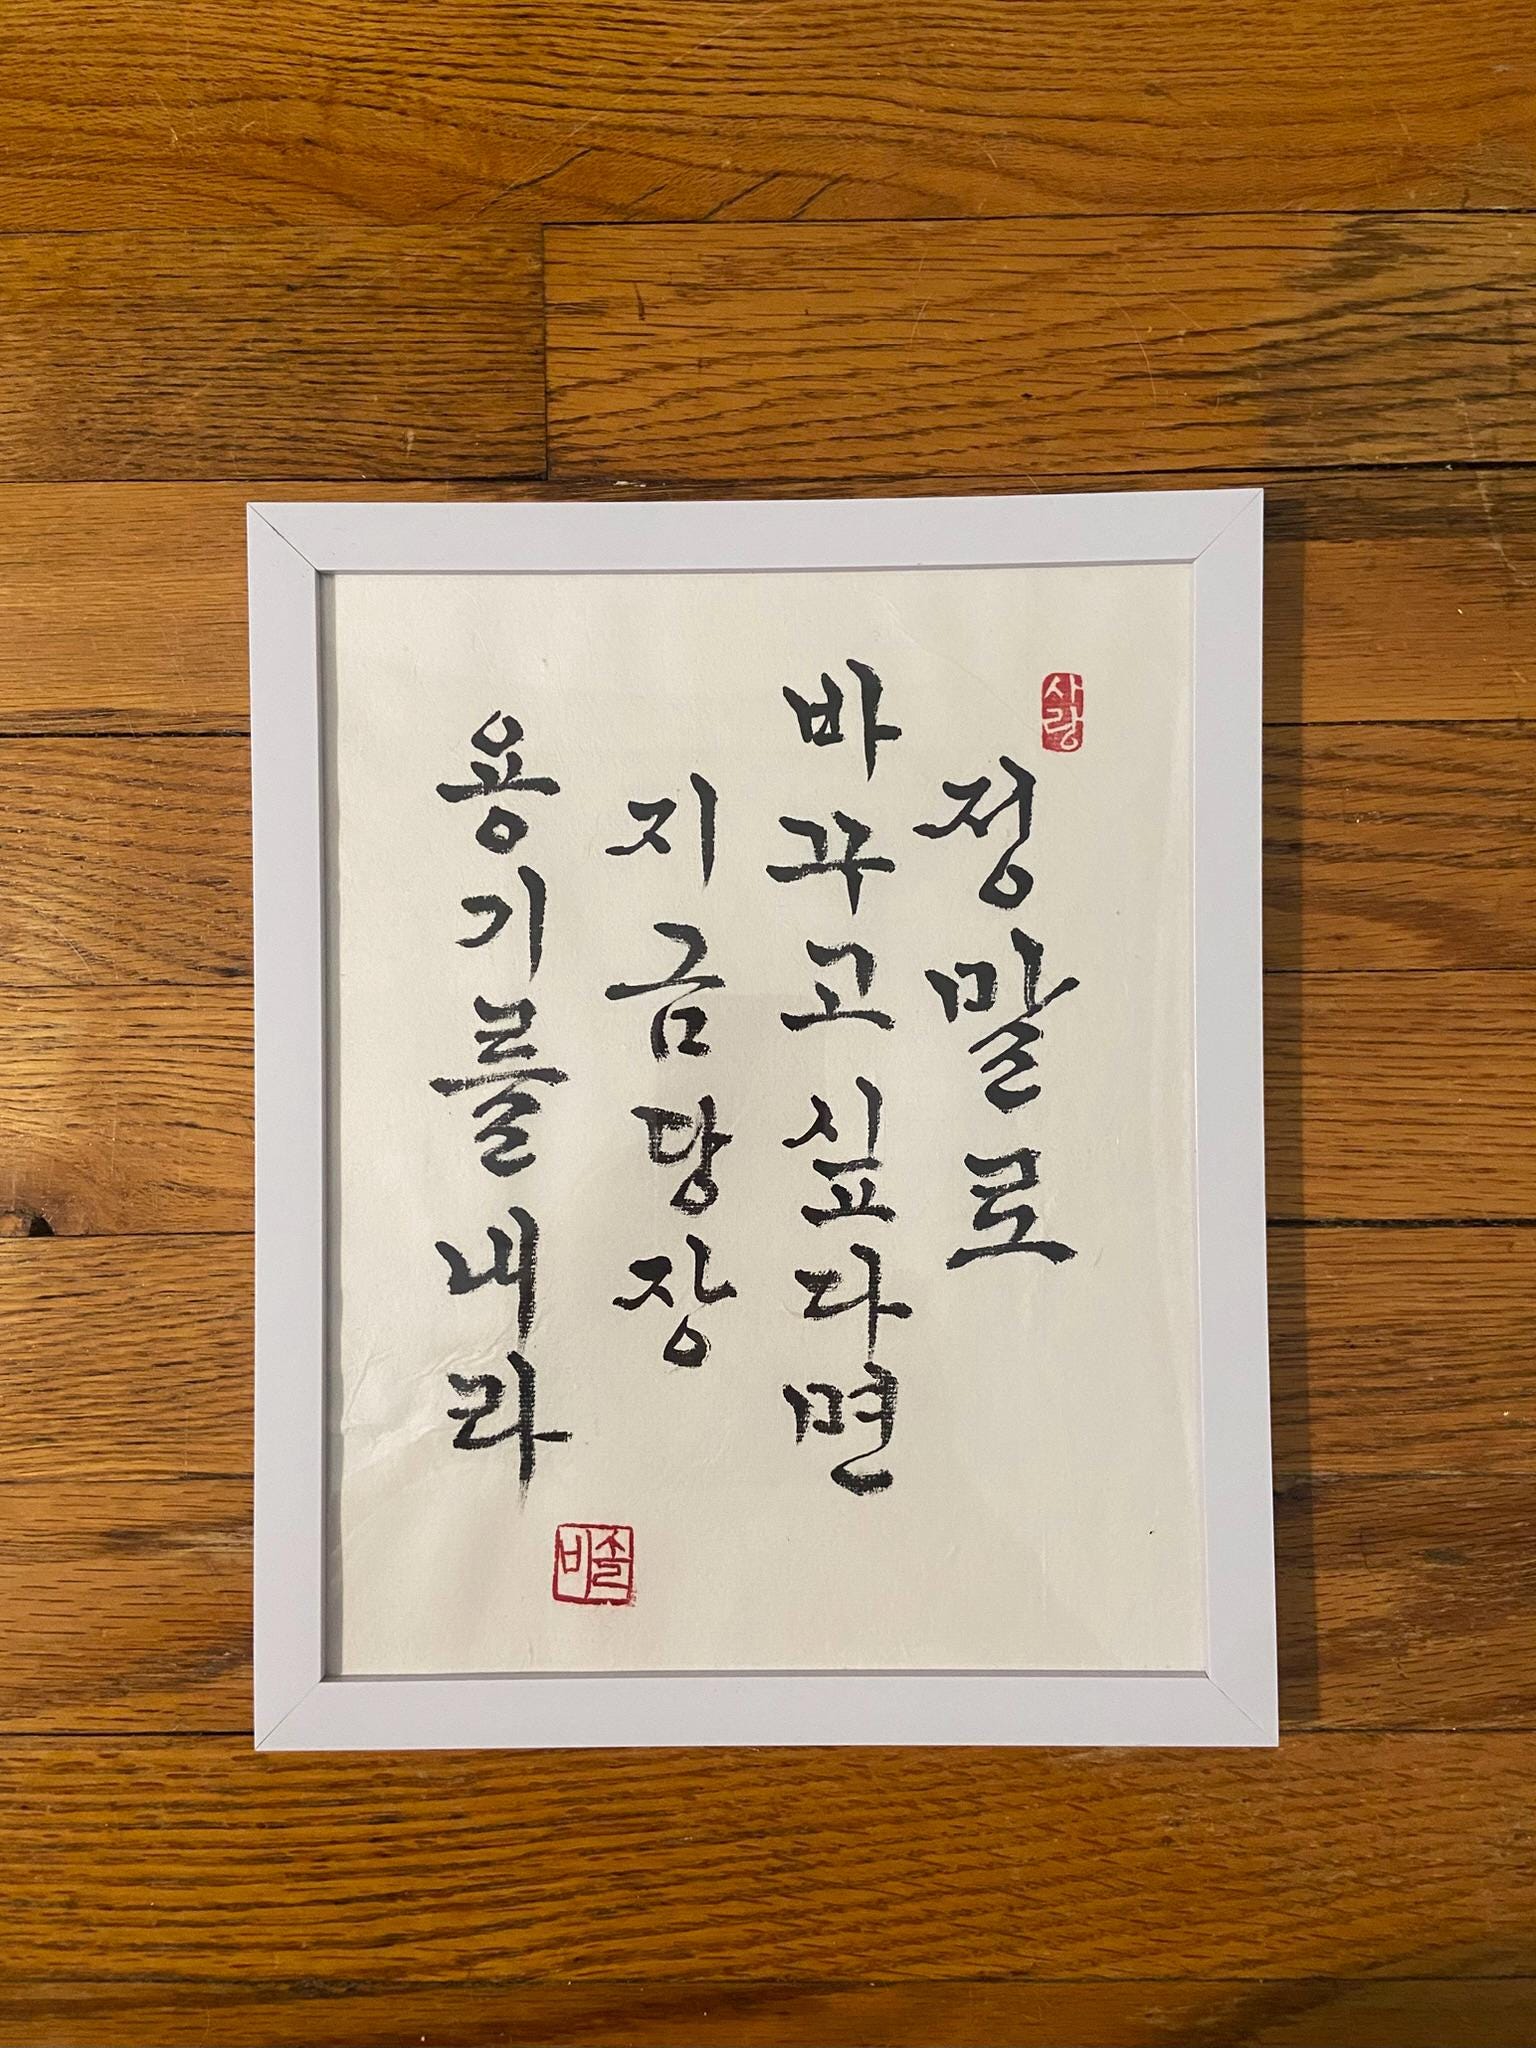 사랑
정말로
바꾸고싶다면
지금당장
용기를내라
솔비